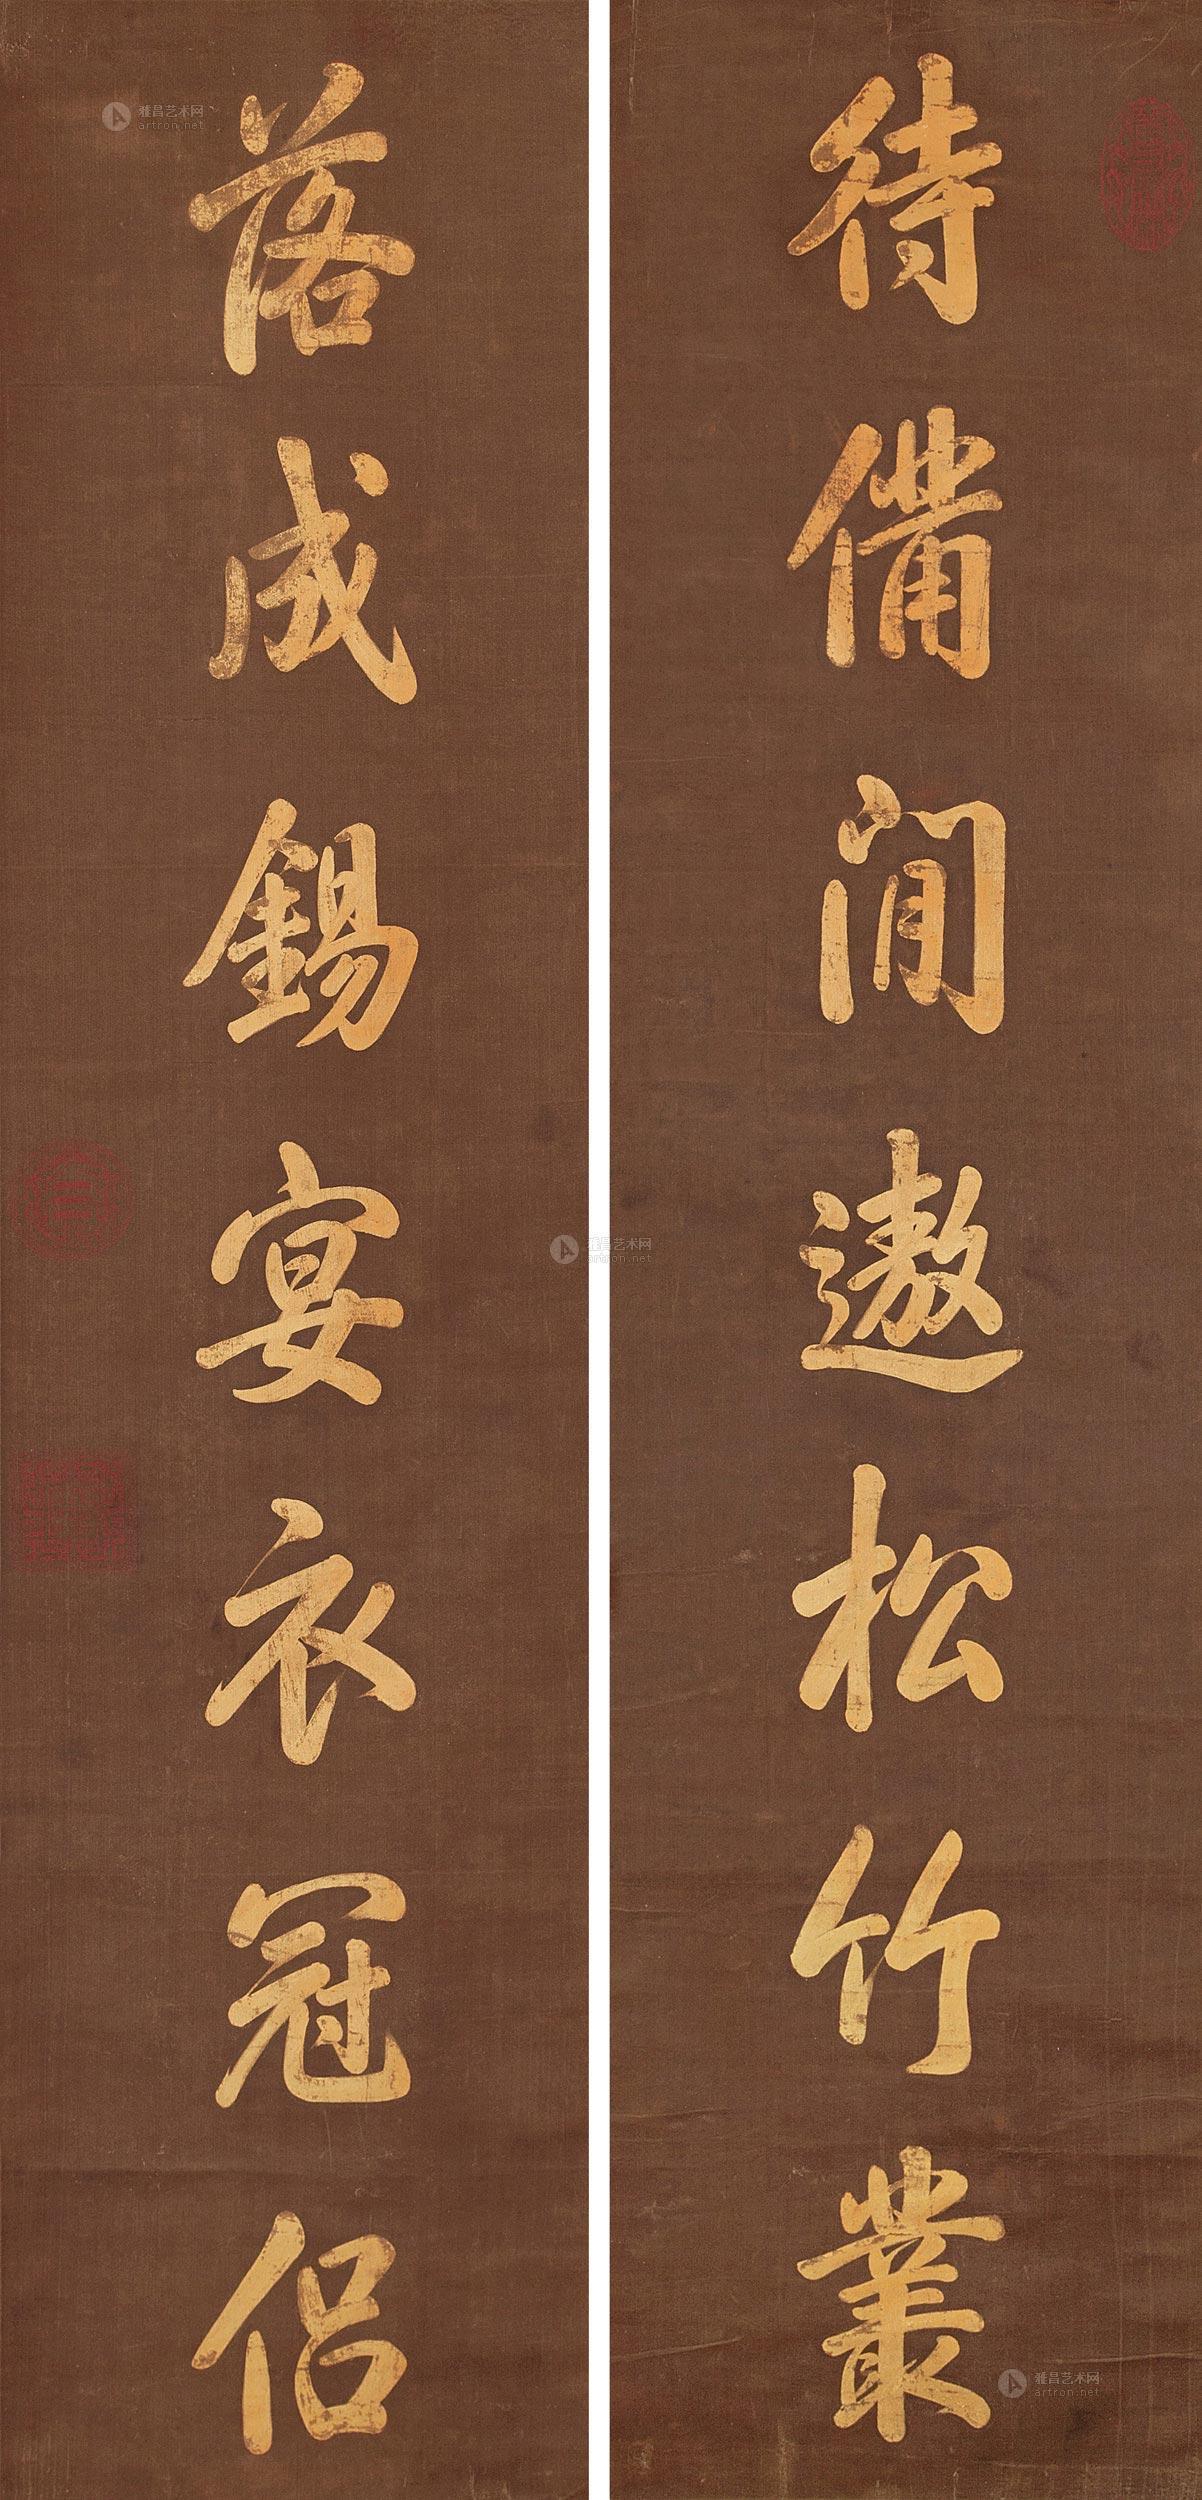 待備閒遨松竹叢
落成錫宴衣冠侶
雅昌艺术网
artron.net
雅昌艺术网
artron.net
雅昌艺术网
artron.net